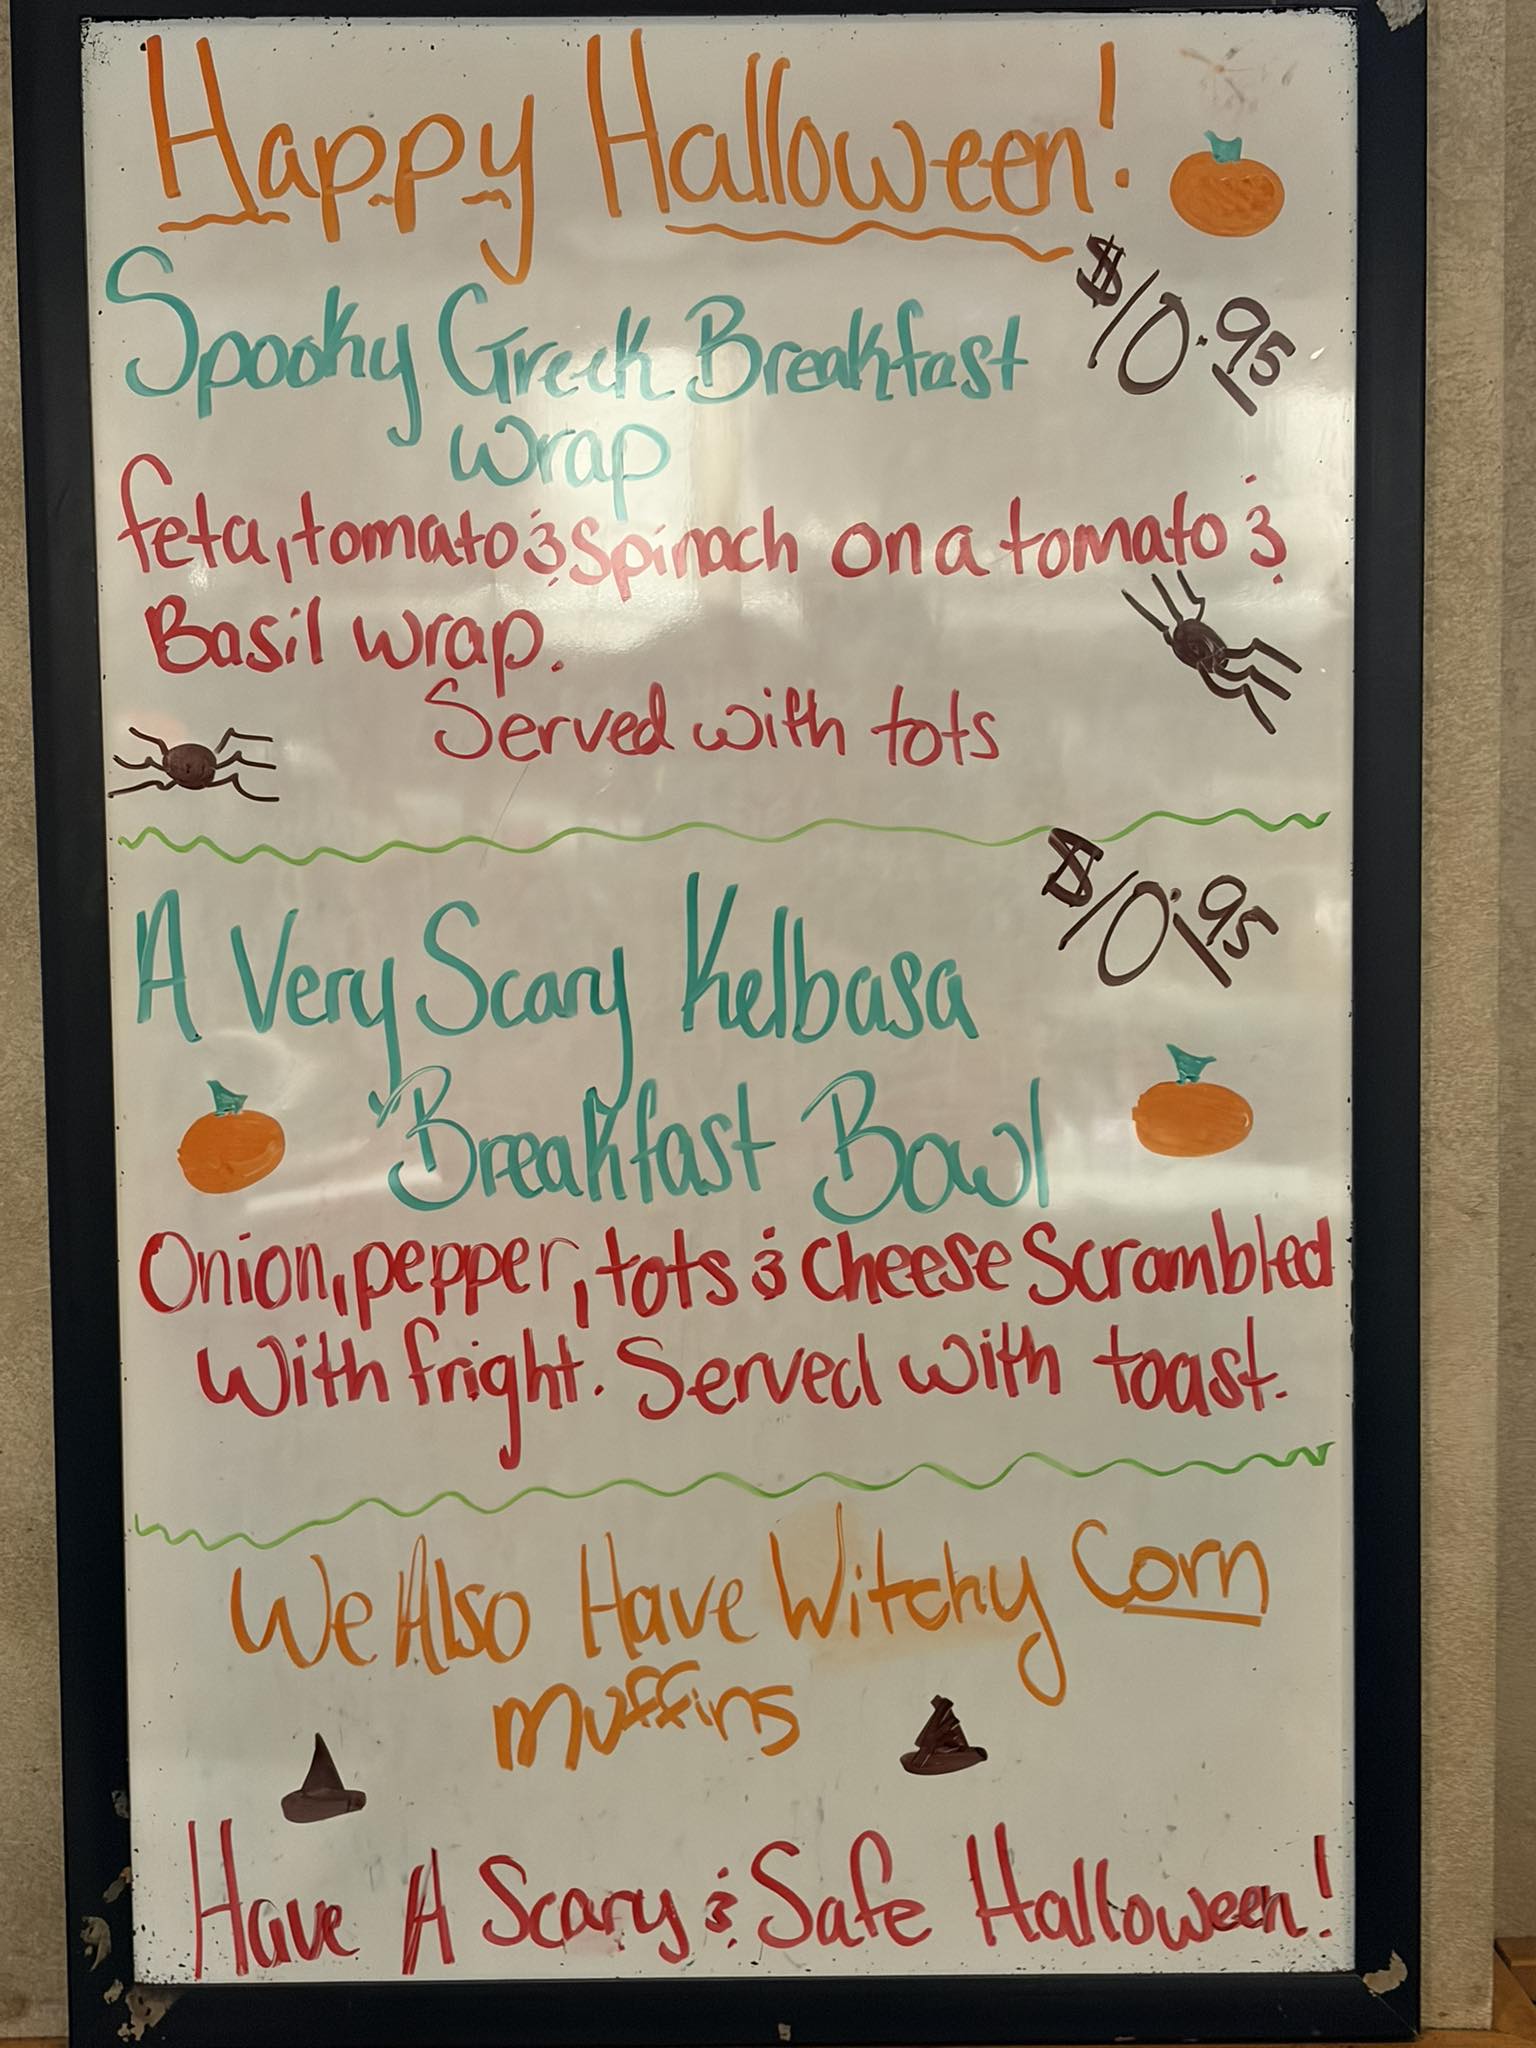 Happy Halloween!
$10.95
Spooky Greek Breakfast
wrap
feta, tomato & spinach on a tomato &
Basil wrap.
Served with tots
$10.95
A Very Scary Kelbasa
Breakfast Bowl
Onion, pepper, tots & cheese Scrambled
With fright. Served with toast.
We Also Have Witchy Corn
muffins
Have A Scary & Safe Halloween!